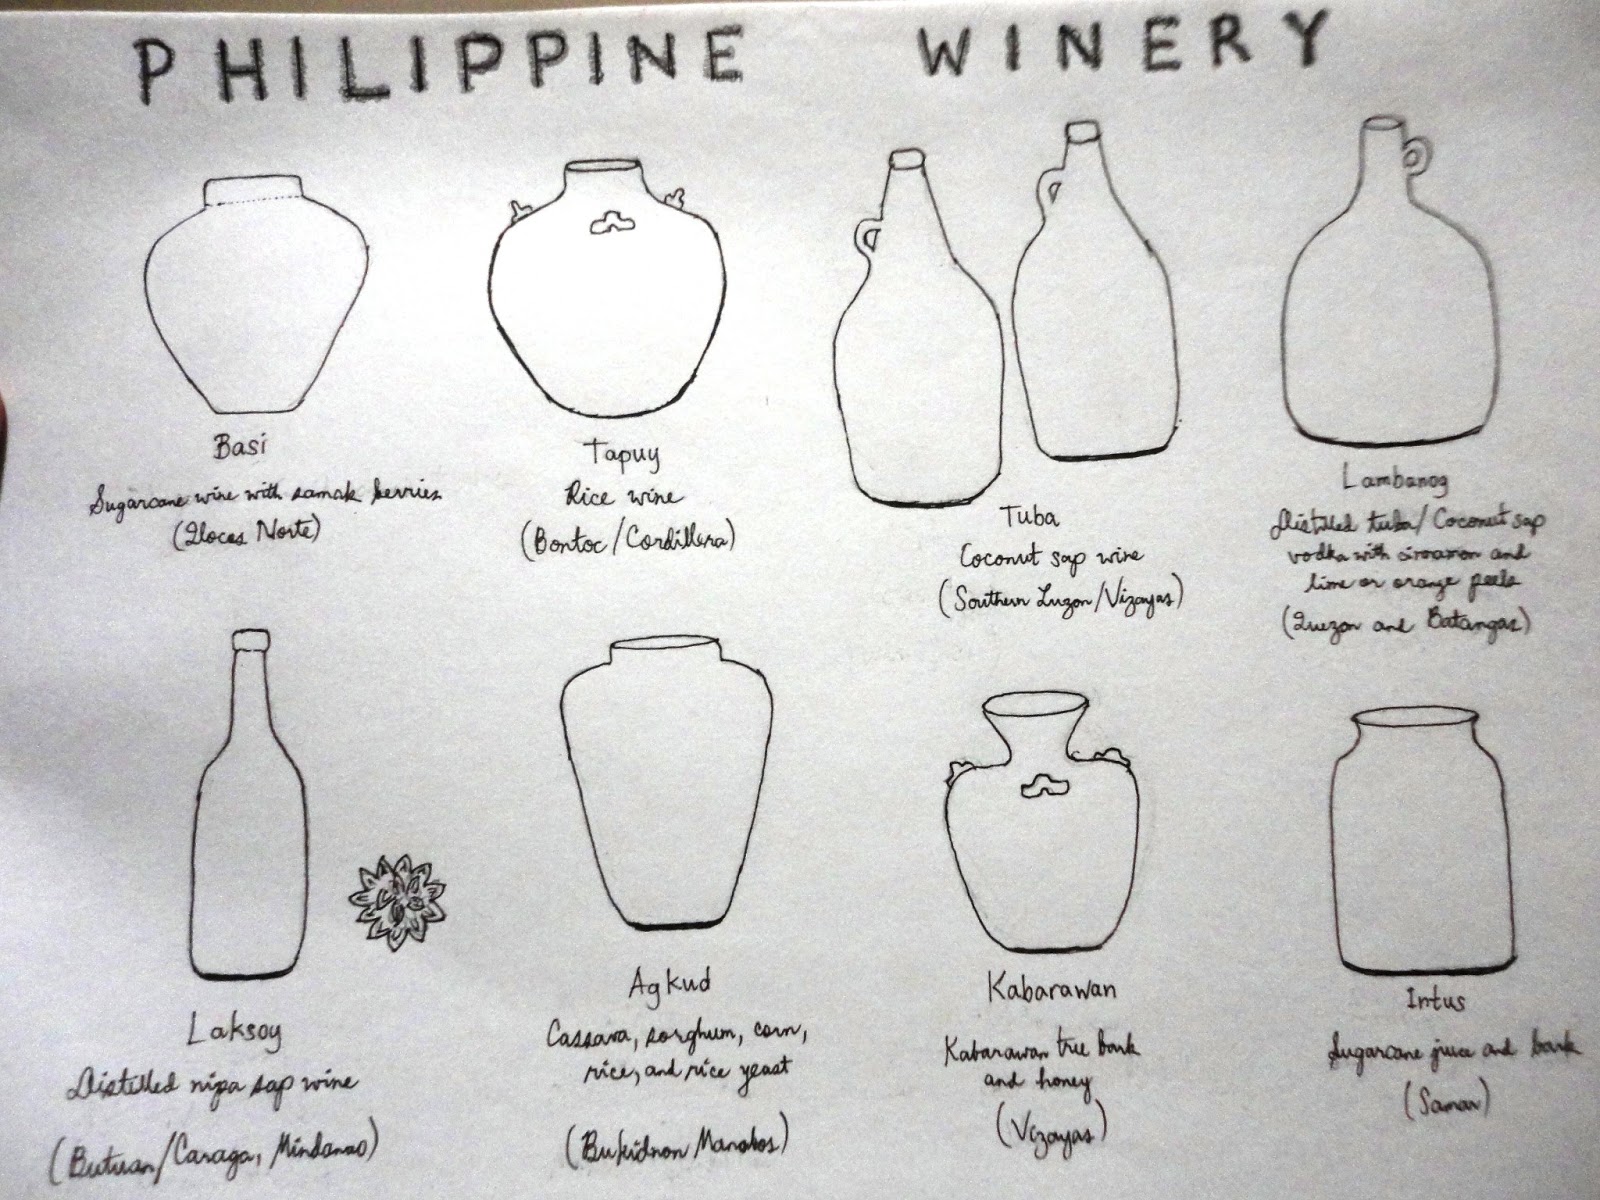 PHILIPPINE WINERY
Basi
Sugarcane wine with samak berries
(Ilocos Norte)
Tapuy
Rice wine
(Bontoc/Cordillera)
Tuba
Coconut sap wine
(Southern Luzon/Vizayas)
Lambanog
Distilled tuba/Coconut sap
vodka with cinnamon and
lime or orange peels
(Quezon and Batangas)
Laksoy
Distilled nipa sap wine
(Butuan/Caraga, Mindanao)
Agkud
Cassava, sorghum, corn,
rice, and rice yeast
(Bukidnon Manobos)
Kabarawan
Kabarawan tree bark
and honey
(Vizayas)
Intus
Sugarcane juice and bark
(Samar)